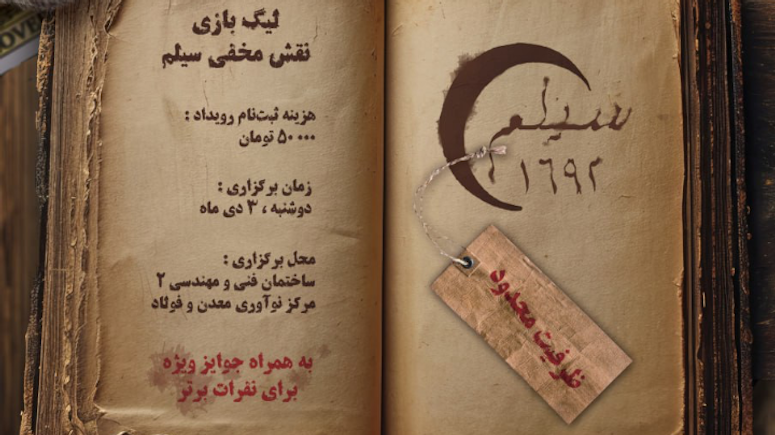 لیگ بازی
نقش مخفی سیلم
هزینه ثبت‌نام رویداد :
۵۰ ۰۰۰ تومان
زمان برگزاری :
دوشنبه ، ۳ دی ماه
محل برگزاری :
ساختمان فنی و مهندسی ۲
مرکز نوآوری معدن و فولاد
به همراه جوایز ویژه
برای نفرات برتر
سیلم
۱۶۹۲
ظرفیت محدود